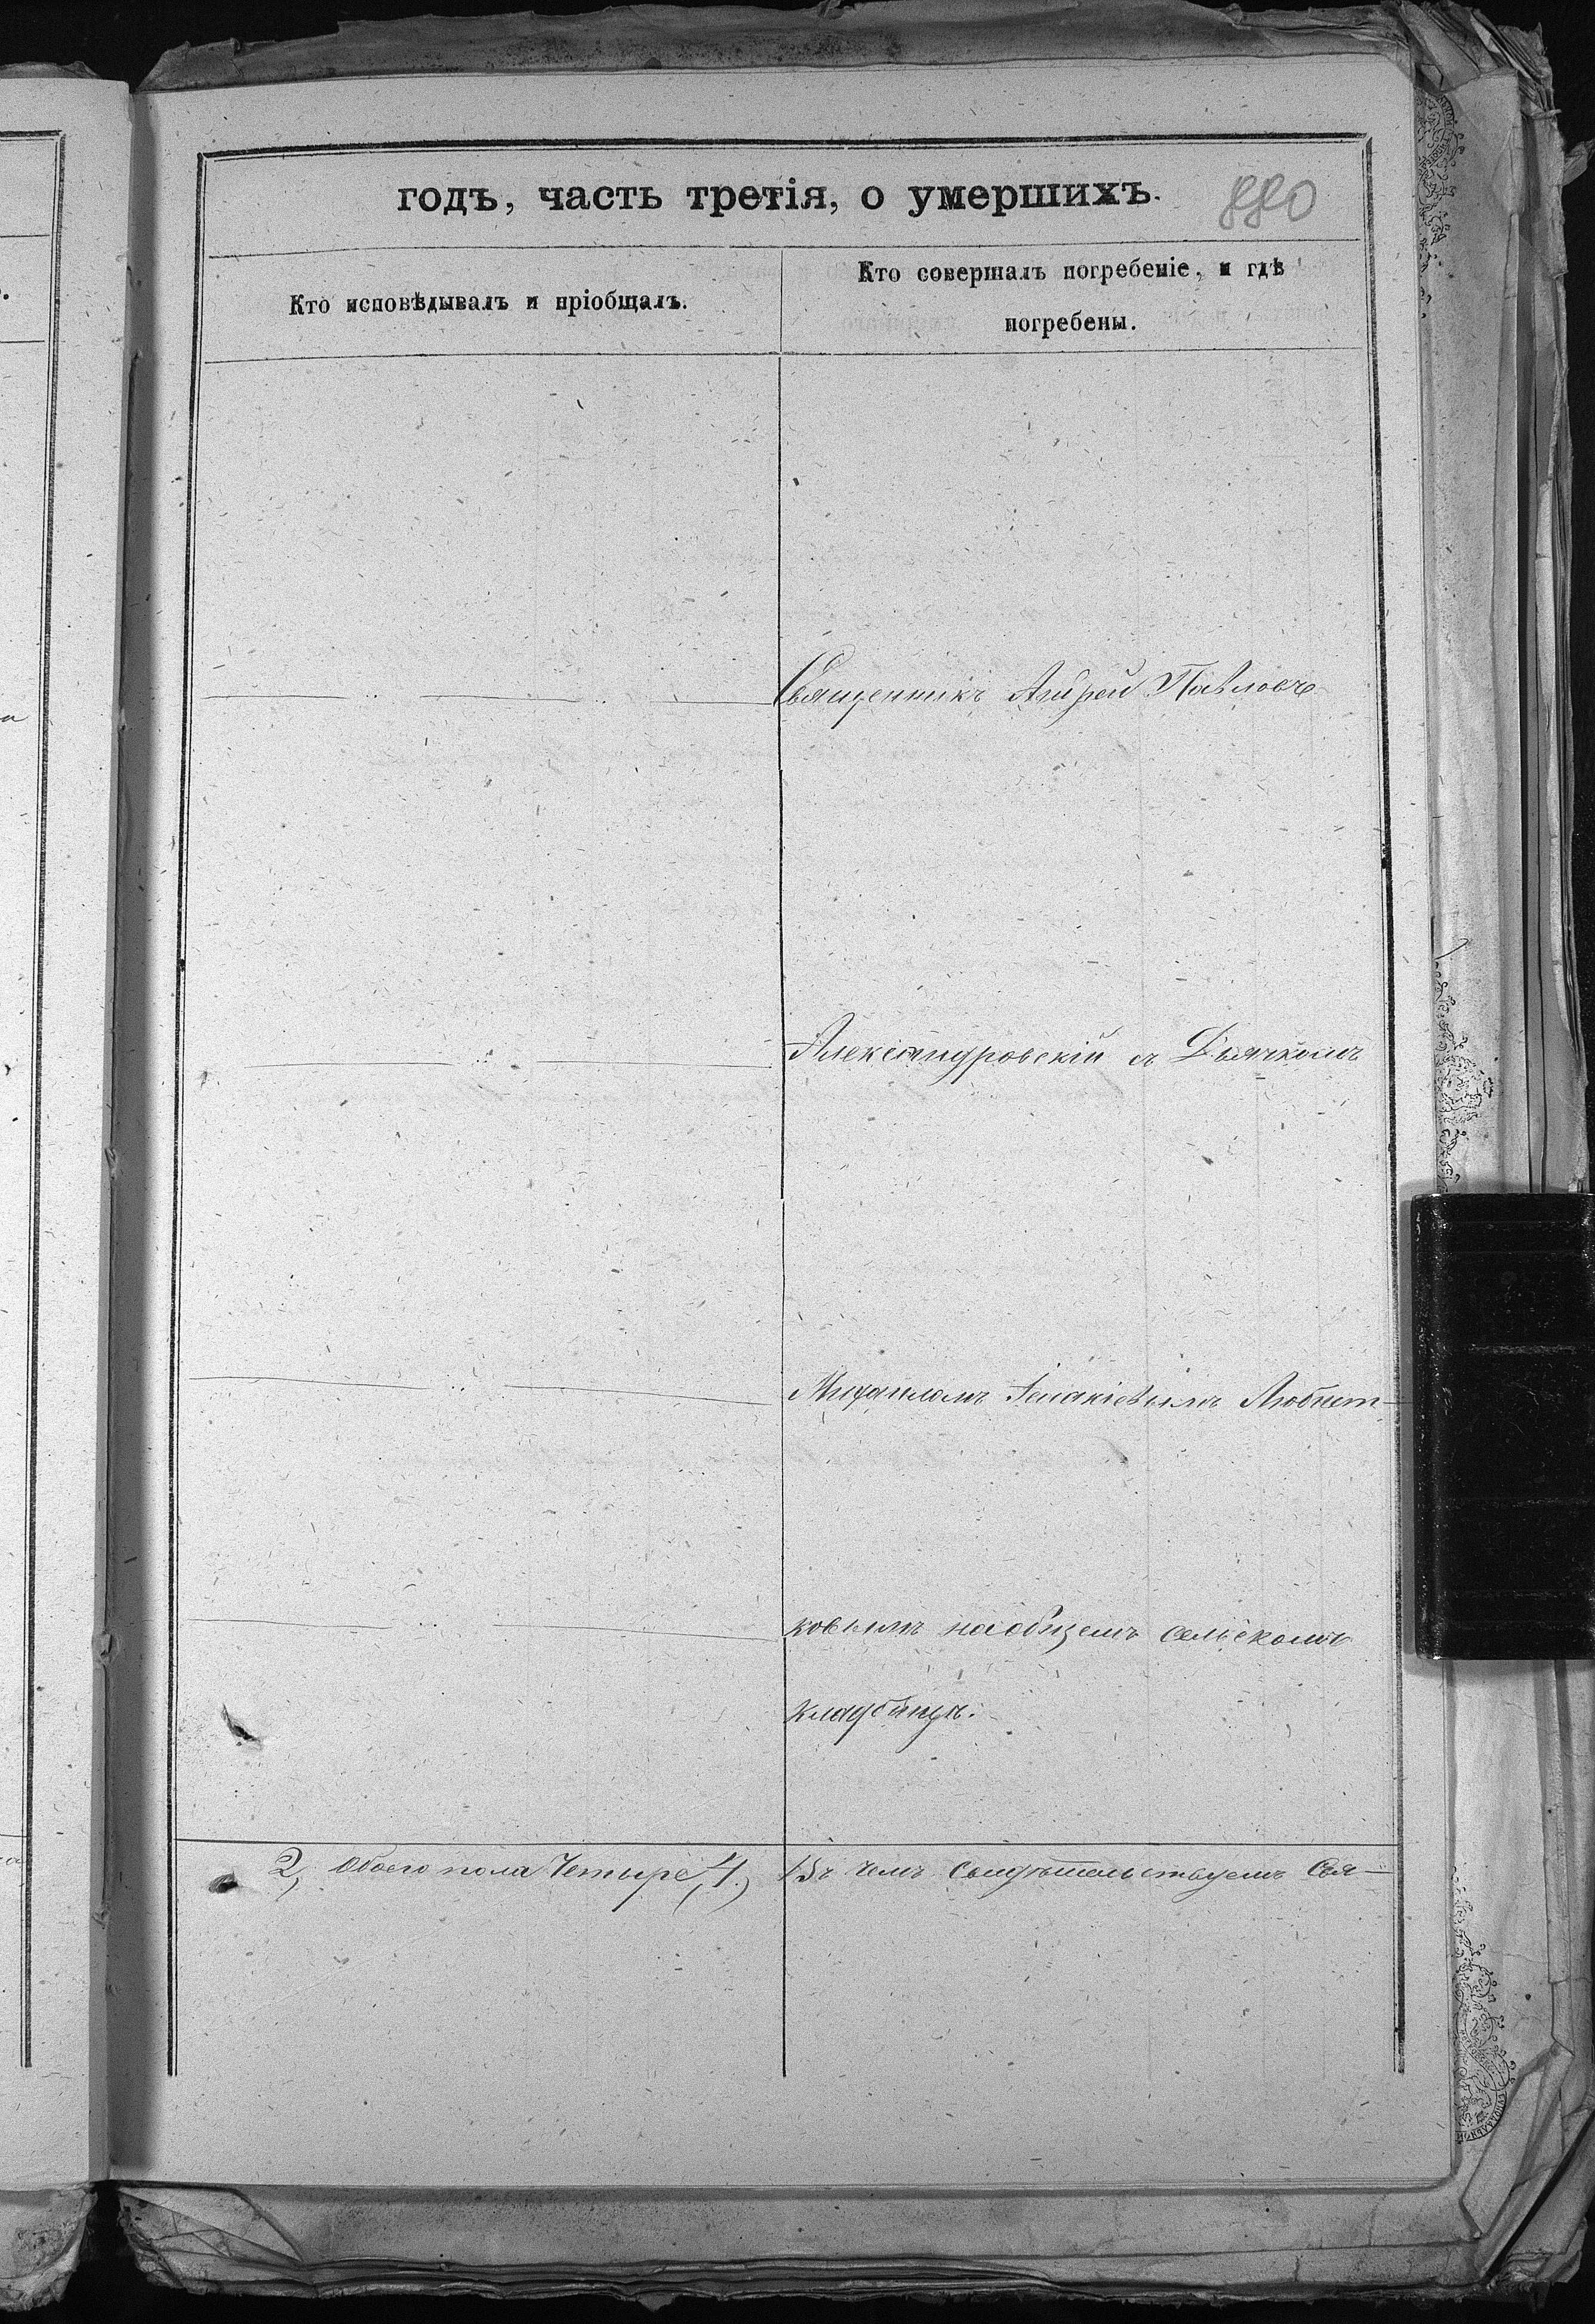 годъ, часть третія, о умершихъ.
Кто исповѣдывалъ и пріобщалъ.
Кто совершалъ погребеніе, и гдѣ
погребены.
Священникъ Андрей Павловъ
Александровскій съ Дьячкомъ
Михаиломъ Іоакіевымъ Любит-
ковымъ на общемъ сельскомъ
кладбищѣ.
2, Обоего пола Четыре, 4.) Въ чемъ Свидѣтельствуемъ Свя-